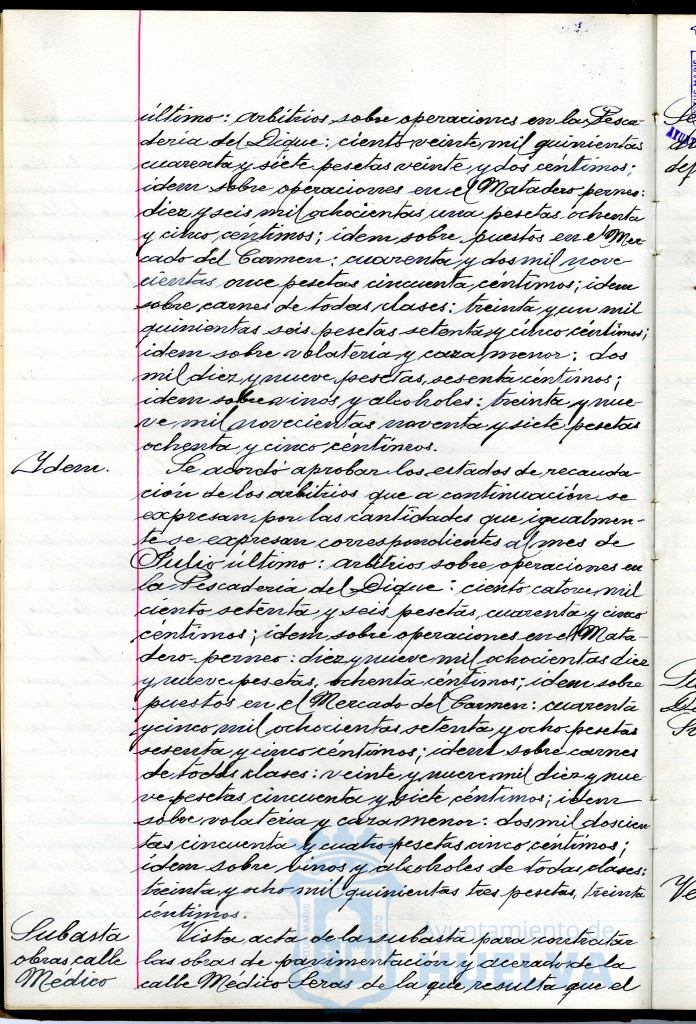 último: arbitrios sobre operaciones en la Pesca-
dería del Dique: ciento veinte mil quinientas
cuarenta y siete pesetas veinte y dos céntimos;
idem sobre operaciones en el Matadero perneo:
diez y seis mil ochocientas una pesetas ochenta
y cinco céntimos; idem sobre puestos en el Mer-
cado del Carmen: cuarenta y dos mil nove-
cientas once pesetas cincuenta céntimos; idem
sobre carnes de todas clases: treinta y un mil
quinientas seis pesetas setenta y cinco céntimos;
idem sobre volatería y caza menor: dos
mil diez y nueve pesetas, sesenta céntimos;
idem sobre vinos y alcoholes: treinta y nue-
ve mil novecientas noventa y siete pesetas
ochenta y cinco céntimos.
Idem. Se acordó aprobar los estados de recauda-
ción de los arbitrios que a continuación se
expresan por las cantidades que igualmen-
te se expresan correspondientes al mes de
Julio último: arbitrios sobre operaciones en
la Pescadería del Dique: ciento catorce mil
ciento setenta y seis pesetas, cuarenta y cinco
céntimos; idem sobre operaciones en el Mata-
dero perneo: diez y nueve mil ochocientas diez
y nueve pesetas, ochenta céntimos; idem sobre
puestos en el Mercado del Carmen: cuarenta
y cinco mil ochocientas setenta y ocho pesetas
sesenta y cinco céntimos; idem sobre carnes
de todas clases: veinte y nueve mil diez y nue-
ve pesetas cincuenta y siete céntimos; idem
sobre volatería y caza menor: dos mil doscien-
tas cincuenta y cuatro pesetas cinco céntimos;
idem sobre vinos y alcoholes de todas clases:
treinta y ocho mil quinientas tres pesetas, treinta
céntimos.
Subasta
obras calle
Médico
Vista acta de la subasta para contratar
las obras de pavimentación y acerado de la
calle Médico Seras de la que resulta que el
Ayuntamiento de
HUELVA